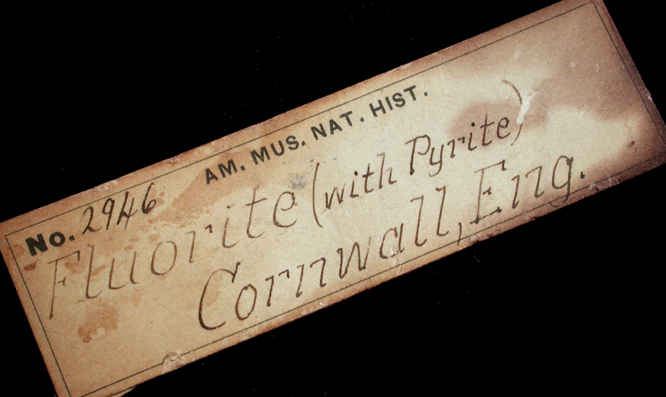 AM. MUS. NAT. HIST.
No. 2946
Fluorite (with Pyrite)
Cornwall, Eng.